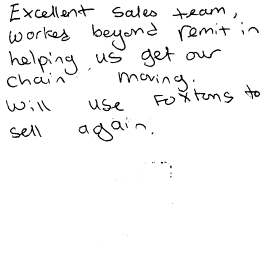 Excellent sales team,
worked beyond remit in
helping us get our
chain moving.
Will use Foxtons to
sell again.